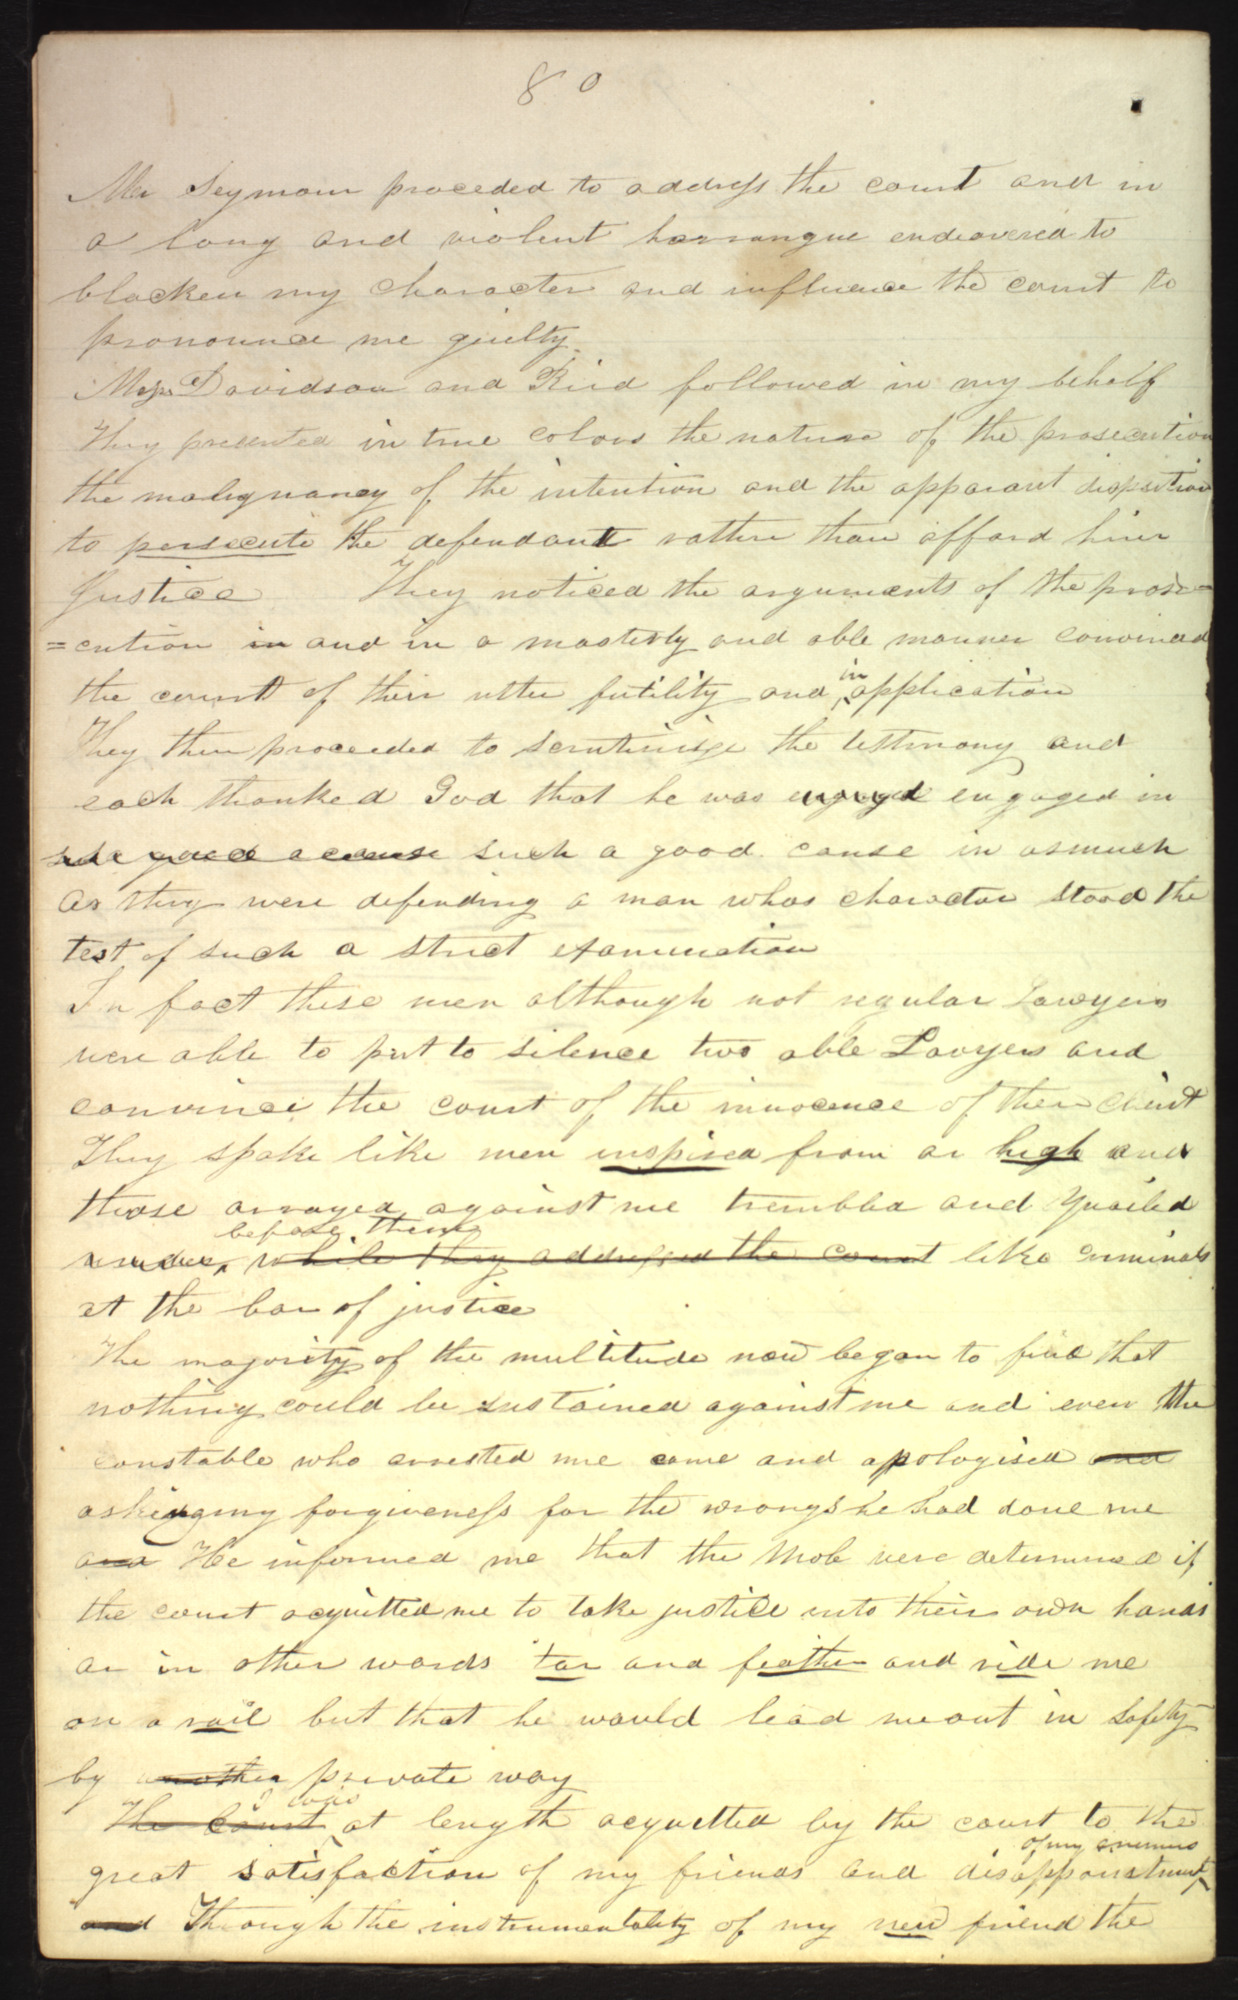 80
Mr Seymour proceded to address the court and in
a long and violent harrangue endeavered to
blacken my character and influence the court to
pronounce me guilty.
Messrs Davidson and Reid followed in my behalf
They presented in true colors the nature of the prosecution
the malignancy of the intention and the apparant disposition
to persecute the defendant rather than afford him
Justice They noticed the arguments of the prose-
=cution in and in a masterly and able manner convinced
the court of their utter futility and in application
They then proceeded to scrutinise the testimony and
each thanked God that he was engaged engaged in
good a cause such a good cause in asmuch
as they were defending a man whos character stood the
test of such a strict examination
In fact these men although not regular Lawyers
were able to put to silence two able Lawyers and
convince the court of the innocence of their client
They spoke like men inspired from on high and
those arrayed against me trembled and Quailed
before them
under while they addressed the court like criminals
at the bar of justice
The majority of the multitude now began to find that
nothing could be sustained against me and even the
constable who arrested me came and apologised and
asking my forgiveness for the wrongs he had done me
and He informed me that the Mob were determined if
the court acquitted me to take justice into their own hands
or in other words tar and feather and ride me
on a rail but that he would lead me out in safety
by another private way
I was
The Court at length acquitted by the court to the
of my enemies
great satisfaction of my friends and disappointment
and Through the instrumentality of my new friend the